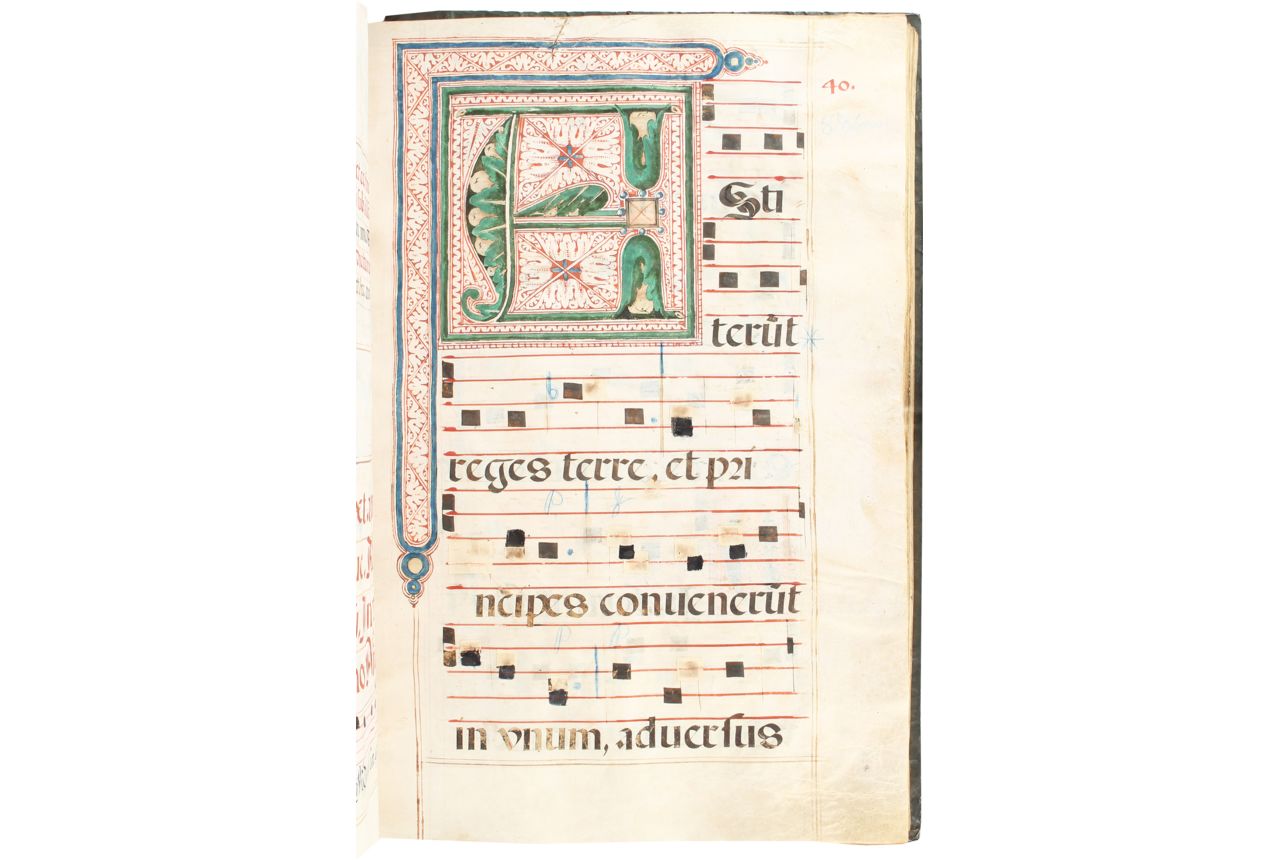 40.
ASti
terũt
reges terre, et pri
ncipes conuenerũt
in vnum, aduersus